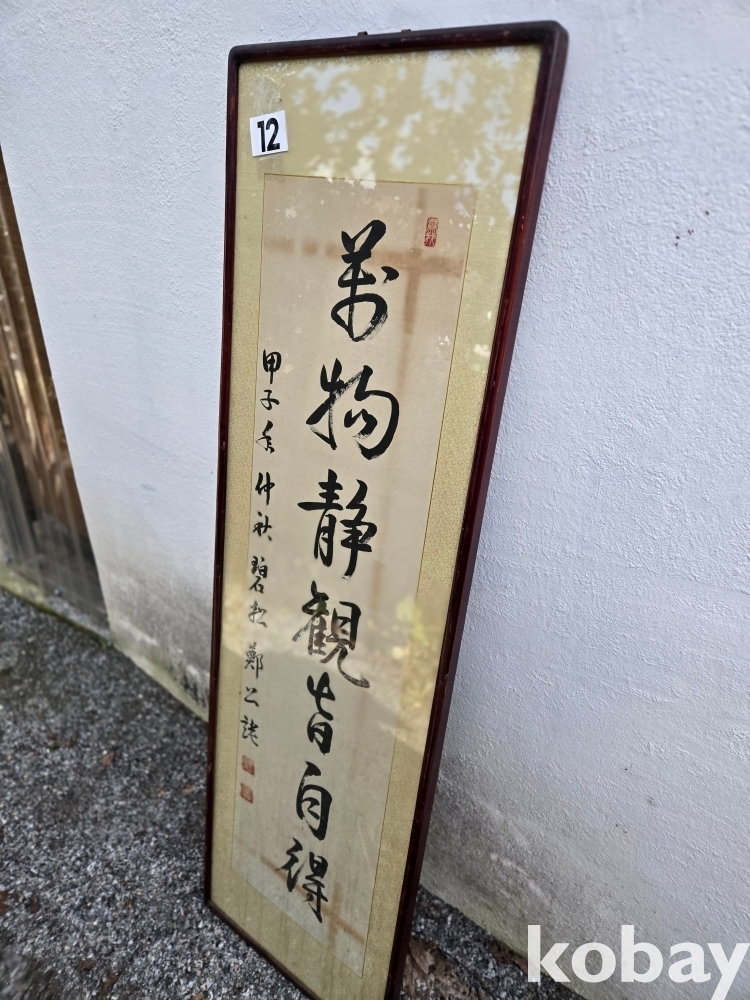 12
萬物静觀皆自得
甲子季仲秋 碧松 鄭公
kobay